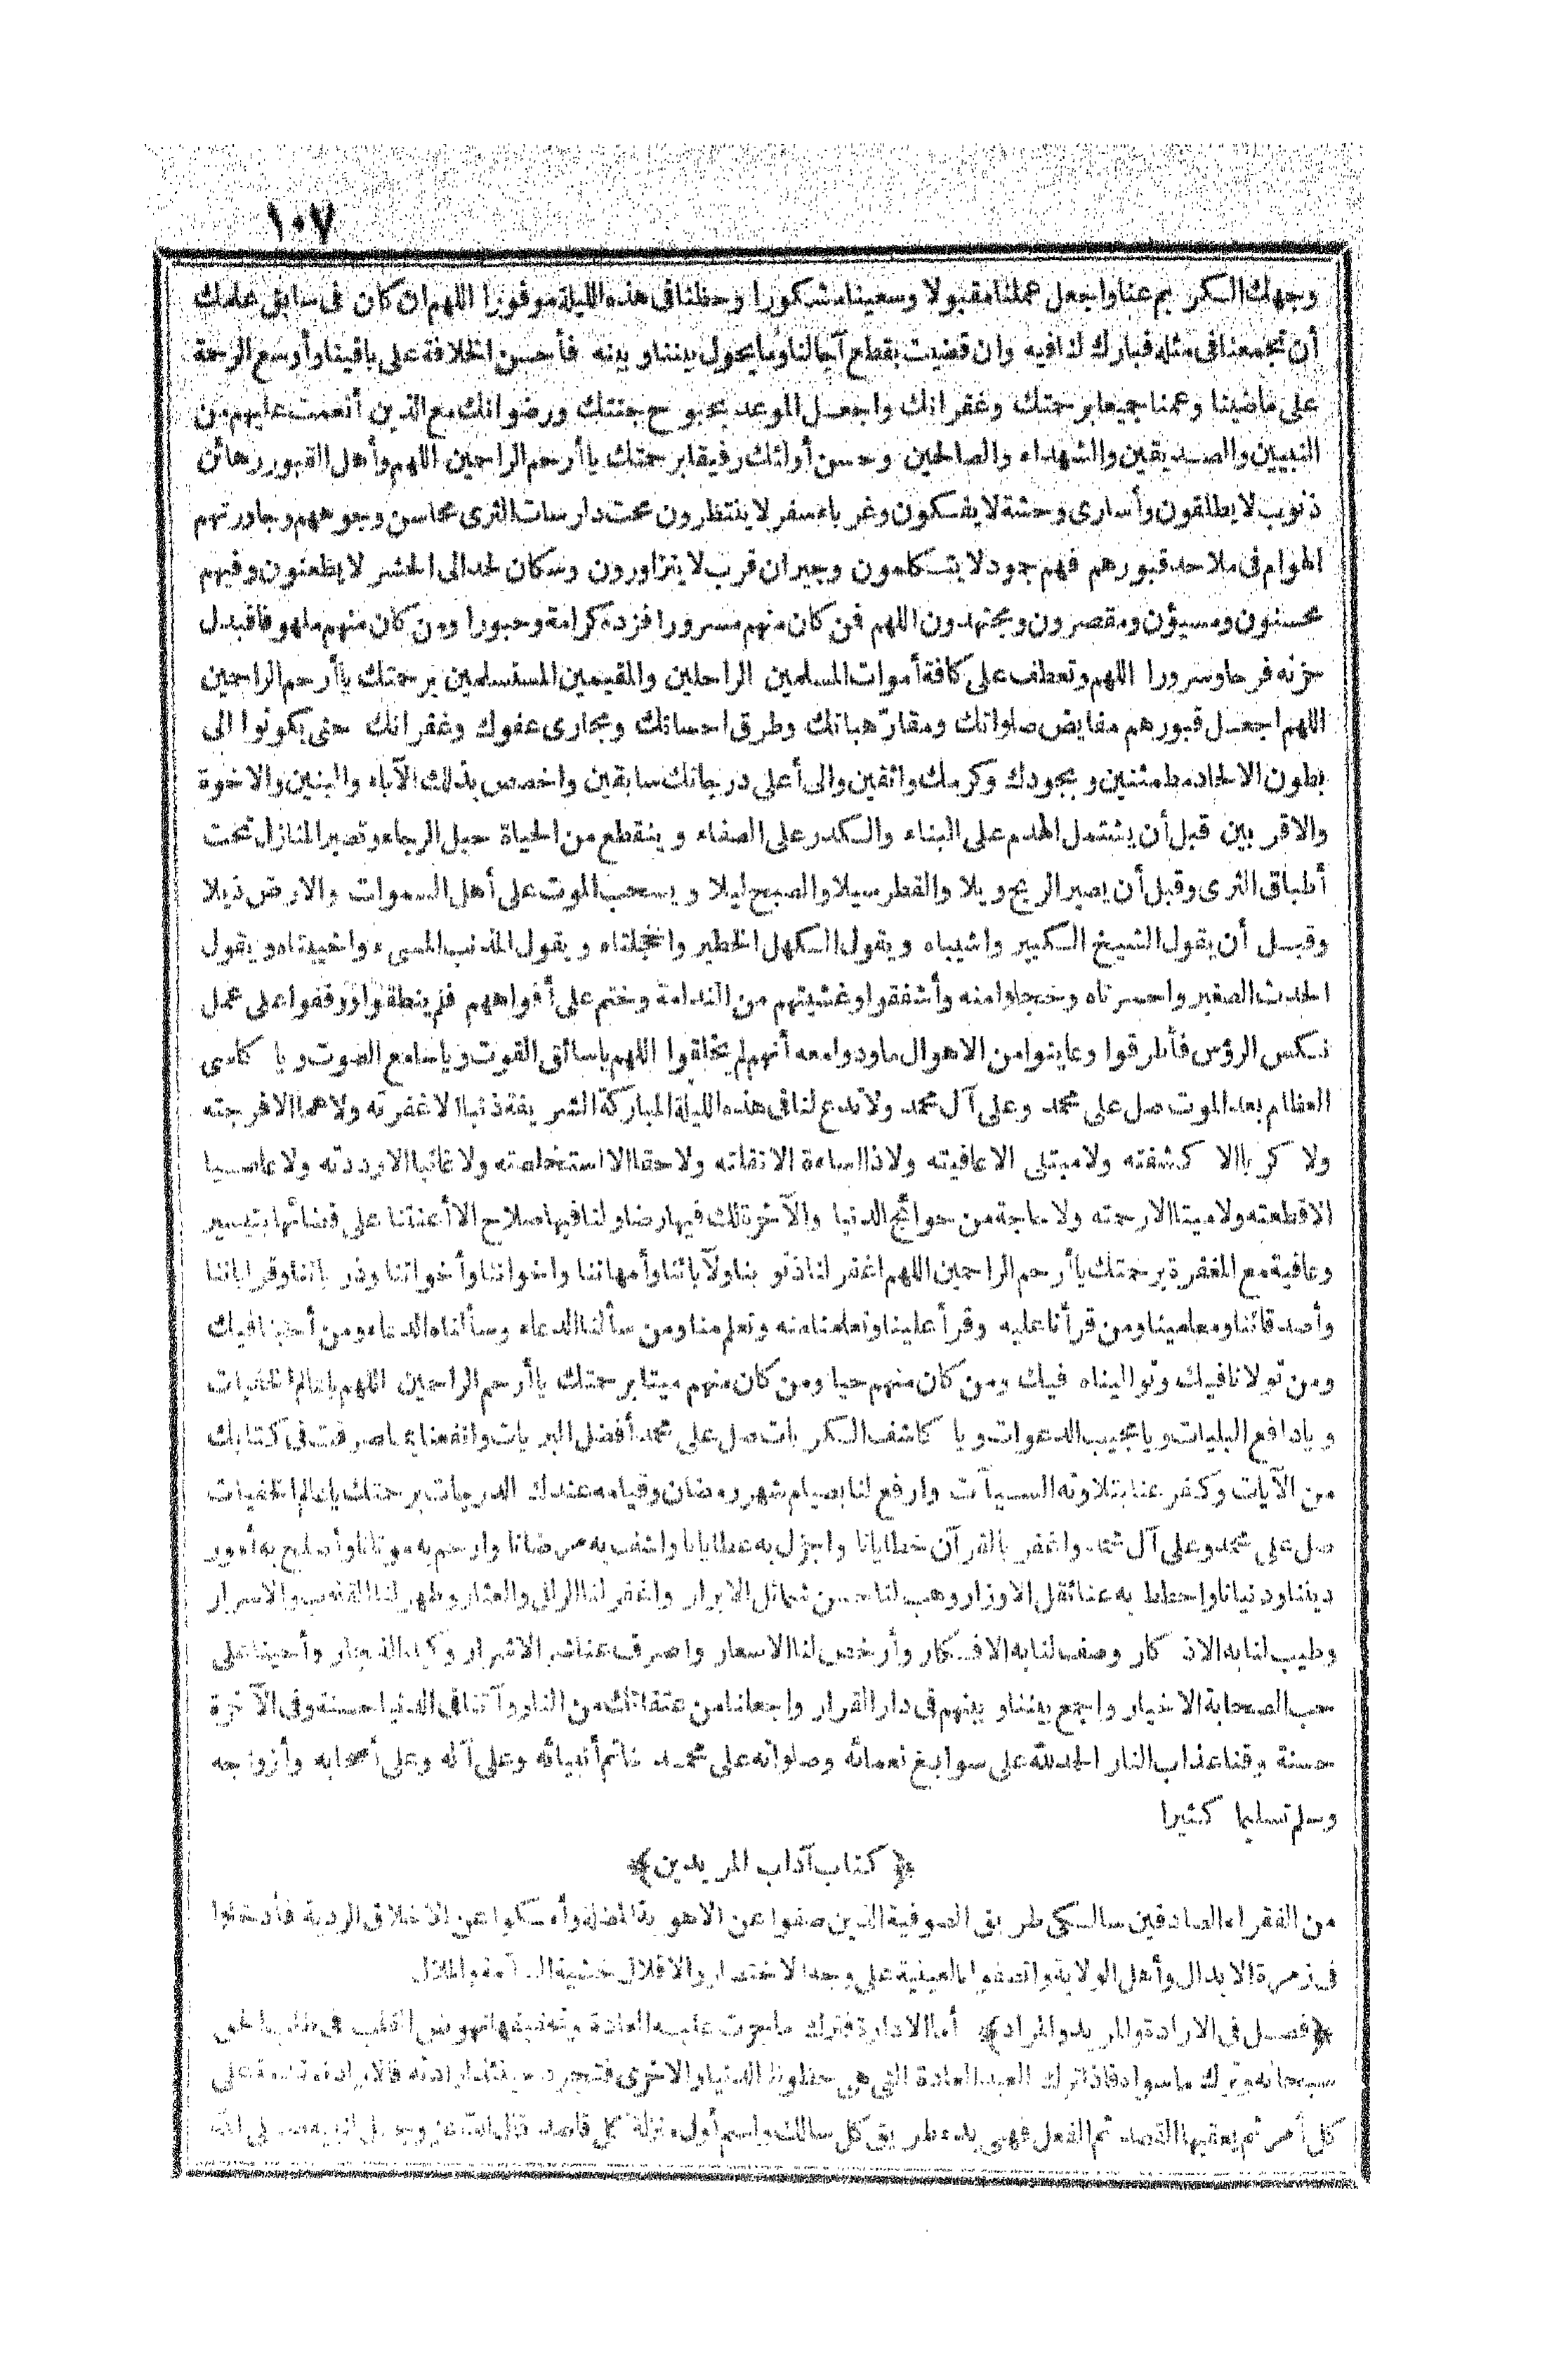 ١٠٧
وجهك الكريم عنا واجعل عملنا مقبولا وسعينا مشكورا وحظنا فى هذه الليلة موفورا اللهم ان كان فى سابق علمك
أن تجمعنا فى مثله فبارك لنا فيه وان قضيت بقطع آجالنا وما يحول بيننا وبينه فأحسن الخلافة على باقينا وأوسع الرحمة
على ماضينا وعمنا جميعا برحمتك وغفرانك واجعل الموعد بحبوح جنتك ورضوانك مع الذين أنعمت عليهم من
النبيين والصديقين والشهداء والصالحين وحسن أولئك رفيقا برحمتك يا أرحم الراحمين اللهم وأهل القبور رهائن
ذنوب لا يطلقون وأسارى وحشة لا يفكون وغرباء سفر لا ينتظرون محت دارسات الثرى محاسن وجوههم وجاورتهم
الهوام فى ملاحد قبورهم فهم جمود لا يتكلمون وجيران قرب لا يتزاورون وسكان لحد الى الحشر لا يظعنون وفيهم
محسنون ومسيؤن ومقصرون ومجتهدون اللهم فمن كان منهم مسرورا فزده كرامة وحبورا ومن كان منهم ملهوفا فابدل
حزنه فرحا وسرورا اللهم وتعطف على كافة أموات المسلمين الراحلين والمقيمين المستسلمين برحمتك يا أرحم الراحمين
اللهم اجعل قبورهم مفايض صلواتك ومقار هباتك وطرق احسانك ومجارى عفوك وغفرانك حتى يكونوا الى
بطون الالحاد مطمئنين وبجودك وكرمك واثقين والى أعلى درجاتك سابقين واخصص بذلك الآباء والبنين والاخوة
والاقربين قبل أن يشتمل الهدم على البناء والكدر على الصفاء وينقطع من الحياة حبل الرجاء وتصير المنازل تحت
أطباق الثرى وقبل أن يصير الريح ويلا والقطر سيلا والصبح ليلا ويسحب الموت على أهل السموات والارض ذيلا
وقبل أن يقول الشيخ الكبير واشيباه ويقول الكهل الخطير واخجلتاه ويقول المذنب المسىء واخيبتاه ويقول
الحدث الصغير واحسرتاه وخجلوا منه وأشفقوا وغشيتهم من الندامة وختم على أفواههم فلم ينطقوا ووقفوا على عمل
نكس الرؤس فأطرقوا وعاينوا من الاهوال ما ودوا معه أنهم لم يخلقوا اللهم يا سائق القوت ويا سامع الصوت ويا كاسى
العظام بعد الموت صل على محمد وعلى آل محمد ولا تدع لنا فى هذه الليلة المباركة الشريفة ذنبا الا غفرته ولا هما الا فرجته
ولا كربا الا كشفته ولا مبتلى الا عافيته ولا ذا اساءة الا نقلته ولا حقا الا استخلصته ولا غائبا الا رددته ولا عاصيا
الا قطعته ولا ميتا الا رحمته ولا حاجة من حوائج الدنيا والآخرة لك فيها رضا ولنا فيها صلاح الا أعنتنا على قضائها بتيسير
وعافية مع المغفرة برحمتك يا أرحم الراحمين اللهم اغفر لنا ذنوبنا ولآبائنا وأمهاتنا واخواننا وأخواتنا وذرياتنا وقراباتنا
وأصدقائنا ومعلمينا ومن قرأنا عليه وقرأ علينا وتعلمنا منه وتعلم منا ومن سألنا الدعاء وسألناه الدعاء ومن أحبنا فيك
ومن تولانا فيك وتواليناه فيك ومن كان منهم حيا ومن كان منهم ميتا برحمتك يا أرحم الراحمين اللهم يا عالم الخفيات
ويا دافع البليات ويا مجيب الدعوات ويا كاشف الكربات صل على محمد أفضل البريات وانفعنا بما صرفت فى كتابك
من الآيات وكفر عنا بتلاوته السيآت وارفع لنا بصيام شهر رمضان وقيامه عندك الدرجات برحمتك يا عالم الخفيات
صل على محمد وعلى آل محمد واغفر بالقرآن خطايانا واجزل به عطايانا واشف به مرضانا وارحم به موتانا وأصلح به أمور
ديننا ودنيانا واحطط به عنا ثقل الاوزار وهب لنا حسن شمائل الابرار واغفر لنا الزلل والعثار وطهر لنا القلوب والاسرار
وطيب لنا به الاذكار وصف لنا به الافكار وأرخص لنا الاسعار واصرف عنا شر الاشرار وكيد الفجار وأحينا على
حب الصحابة الاخيار واجمع بيننا وبينهم فى دار القرار واجعلنا من عتقائك من النار وآتنا فى الدنيا حسنة وفى الآخرة
حسنة وقنا عذاب النار الحمد لله على سوابغ نعمائه وصلواته على محمد خاتم أنبيائه وعلى آله وعلى أصحابه وأزواجه
وسلم تسليما كثيرا
﴿ كتاب آداب المريدين ﴾
من الفقراء الصادقين سالكى طريق الصوفية الذين صفوا عن الاهوية المضلة وأمسكوا عن الاخلاق الردية فأدخلوا
فى زمرة الابدال وأهل الولاية واتصفوا بالعينية على وجه الاختصار والاقلال خشية السآمة والملال
﴿ فصل فى الارادة والمريد والمراد ﴾ أما الارادة فترك ما جرت عليه العادة وتحقيقها نهوض القلب فى طلب الحق
سبحانه وترك ما سواه فاذا ترك العبد العادة التى هى حظوظ الدنيا والاخرى فتجرد حينئذ ارادته فالارادة مقدمة على
كل أمر ثم يعقبها القصد ثم الفعل فهى بدء طريق كل سالك واسم أول منزلة كل قاصد قال الله عز وجل لنبيه صلى الله